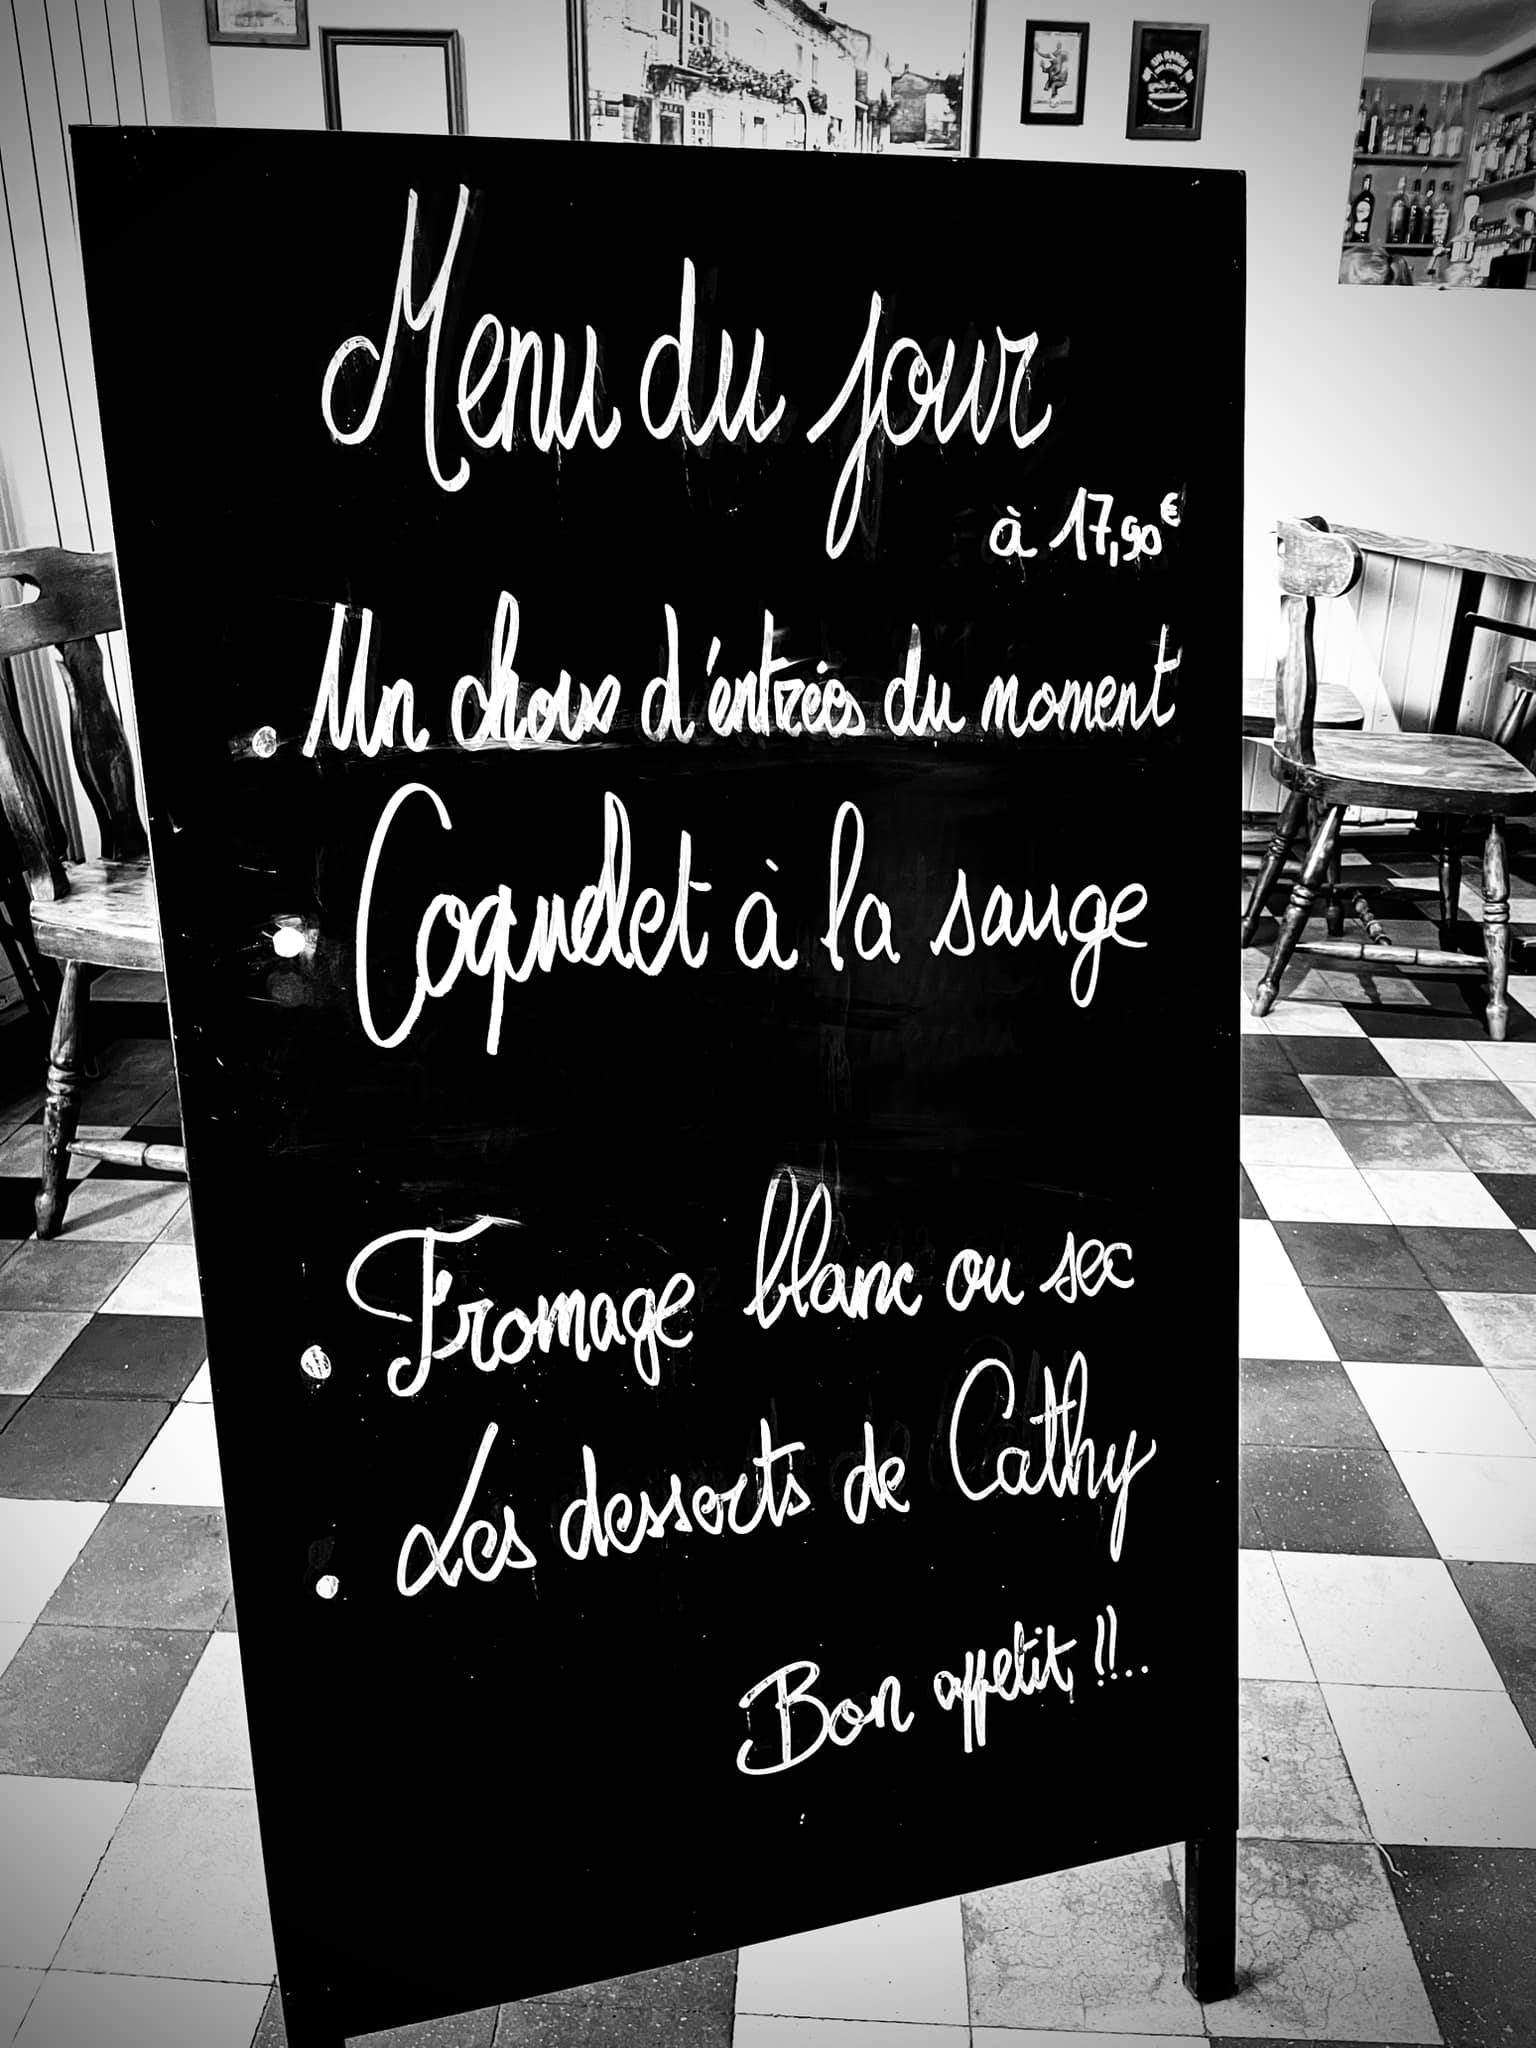 Menu du jour
à 17,90€
• Un choix d'éntrées du moment
• Coquelet à la sauge
• Fromage blanc ou sec
• Les desserts de Cathy
Bon appetit !!..